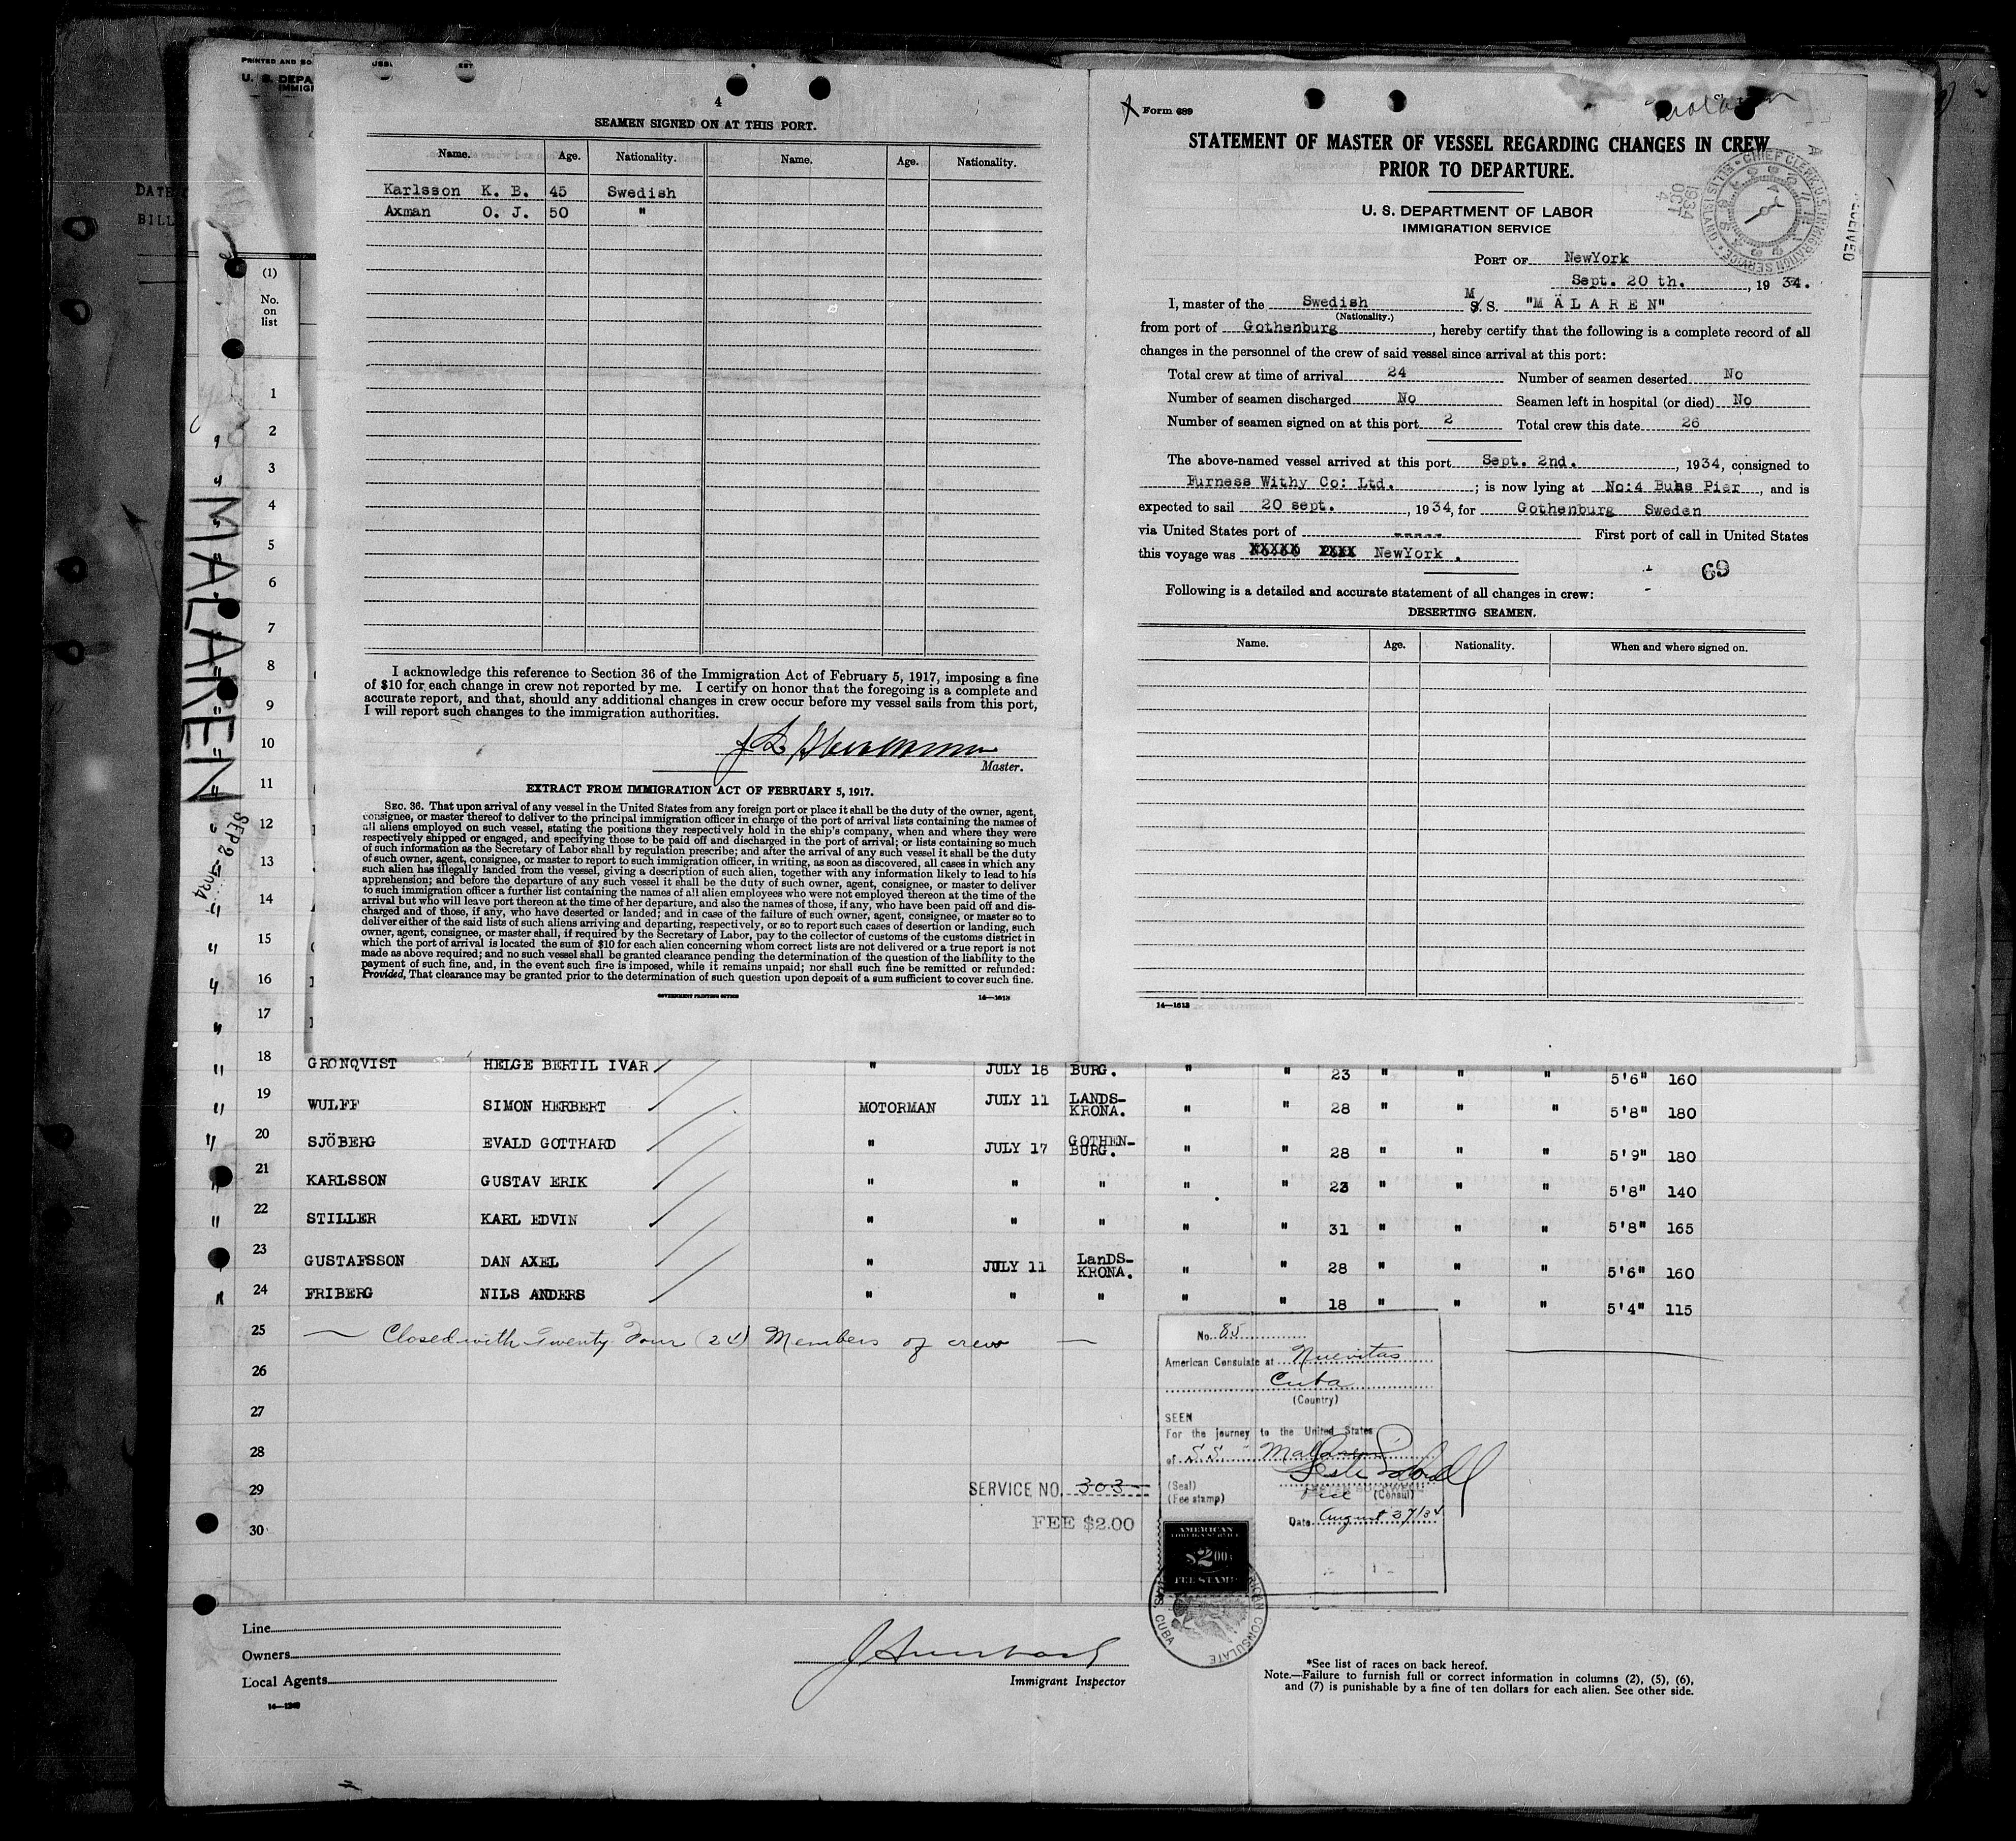 PRINTED AND SO
U. S. DEPA
IMMIGR
DATE
BILL
4
SEAMEN SIGNED ON AT THIS PORT.
Name. Age. Nationality. Name. Age. Nationality.
Karlsson K. B. 45 Swedish
Axman O. J. 50 "
I acknowledge this reference to Section 36 of the Immigration Act of February 5, 1917, imposing a fine
of $10 for each change in crew not reported by me. I certify on honor that the foregoing is a complete and
accurate report, and that, should any additional changes in crew occur before my vessel sails from this port,
I will report such changes to the immigration authorities.
Master.
EXTRACT FROM IMMIGRATION ACT OF FEBRUARY 5, 1917.
SEC. 36. That upon arrival of any vessel in the United States from any foreign port or place it shall be the duty of the owner, agent,
consignee, or master thereof to deliver to the principal immigration officer in charge of the port of arrival lists containing the names of
all aliens employed on such vessel, stating the positions they respectively hold in the ship's company, when and where they were
respectively shipped or engaged, and specifying those to be paid off and discharged in the port of arrival; or lists containing so much
of such information as the Secretary of Labor shall by regulation prescribe; and after the arrival of any such vessel it shall be the duty
of such owner, agent, consignee, or master to report to such immigration officer, in writing, as soon as discovered, all cases in which any
such alien has illegally landed from the vessel, giving a description of such alien, together with any information likely to lead to his
apprehension; and before the departure of any such vessel it shall be the duty of such owner, agent, consignee, or master to deliver
to such immigration officer a further list containing the names of all alien employees who were not employed thereon at the time of the
arrival but who will leave port thereon at the time of her departure, and also the names of those, if any, who have been paid off and dis-
charged and of those, if any, who have deserted or landed; and in case of the failure of such owner, agent, consignee, or master so to
deliver either of the said lists of such aliens arriving and departing, respectively, or so to report such cases of desertion or landing, such
owner, agent, consignee, or master shall, if required by the Secretary of Labor, pay to the collector of customs of the customs district in
which the port of arrival is located the sum of $10 for each alien concerning whom correct lists are not delivered or a true report is not
made as above required; and no such vessel shall be granted clearance pending the determination of the question of the liability to the
payment of such fine, and, in the event such fine is imposed, while it remains unpaid; nor shall such fine be remitted or refunded:
Provided, That clearance may be granted prior to the determination of such question upon deposit of a sum sufficient to cover such fine.
GOVERNMENT PRINTING OFFICE 14—1613
Form 689
STATEMENT OF MASTER OF VESSEL REGARDING CHANGES IN CREW
PRIOR TO DEPARTURE.
U. S. DEPARTMENT OF LABOR
IMMIGRATION SERVICE
CHIEF CLERK, U.S. IMMIGRATION SERVICE · ELLIS ISLAND
1934 OCT 4
RECEIVED
PORT OF NewYork
Sept. 20 th. , 19 34.
I, master of the Swedish M S. S. "M Ä L A R E N"
(Nationality.)
from port of Gothenburg , hereby certify that the following is a complete record of all
changes in the personnel of the crew of said vessel since arrival at this port:
Total crew at time of arrival 24 Number of seamen deserted No
Number of seamen discharged No Seamen left in hospital (or died) No
Number of seamen signed on at this port 2 Total crew this date 26
The above-named vessel arrived at this port Sept. 2nd. , 1934, consigned to
Furness Withy Co: Ltd. ; is now lying at No:4 Buhs Pier , and is
expected to sail 20 sept. , 1934, for Gothenburg Sweden
via United States port of ----- First port of call in United States
this voyage was NewYork .
69
Following is a detailed and accurate statement of all changes in crew:
DESERTING SEAMEN.
Name. Age. Nationality. When and where signed on.
14—1613
MALAREN
SEP 2 - 1934
(1)
No.
on
list
1
2
3
4
5
6
7
8
9
10
11
12
13
14
15
16
17
18 GRONQVIST HELGE BERTIL IVAR " JULY 18 BURG. " " 23 " " " 5'6" 160
19 WULFF SIMON HERBERT MOTORMAN JULY 11 LANDS-KRONA. " " 28 " " " 5'8" 180
20 SJÖBERG EVALD GOTTHARD " JULY 17 GOTHEN-BURG. " " 28 " " " 5'9" 180
21 KARLSSON GUSTAV ERIK " " " " " 23 " " " 5'8" 140
22 STILLER KARL EDVIN " " " " " 31 " " " 5'8" 165
23 GUSTAFSSON DAN AXEL " JULY 11 LanDS-KRONA. " " 28 " " " 5'6" 160
24 FRIBERG NILS ANDERS " " " " " 18 " " " 5'4" 115
25 — Closed with Twenty Four (24) Members of crew —
26
27
28
29
30
No. 85
American Consulate at Nuevitas
Cuba
(Country)
SEEN
For the journey to the United States
of S.S. Malaren
(Seal) Vice (Consul)
(Fee stamp)
Date August 27/34
SERVICE NO. 303
FEE $2.00
AMERICAN
FOREIGN SERVICE
$2.00
FEE STAMP
AMERICAN CONSULATE
CUBA
Line
Owners
Local Agents
Immigrant Inspector
*See list of races on back hereof.
Note.—Failure to furnish full or correct information in columns (2), (5), (6),
and (7) is punishable by a fine of ten dollars for each alien. See other side.